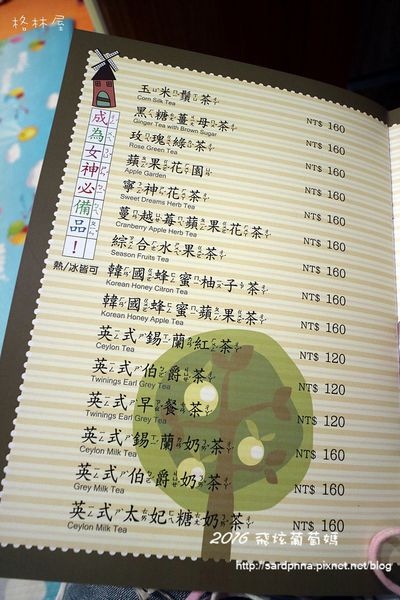 格林屋
成為女神必備品！
熱/冰皆可
玉米鬚茶 NT$ 160
Corn Silk Tea
黑糖薑母茶 NT$ 160
Ginger Tea with Brown Sugar
玫瑰綠茶 NT$ 160
Rose Green Tea
蘋果花園 NT$ 160
Apple Garden
寧神花茶 NT$ 160
Sweet Dreams Herb Tea
蔓越莓蘋果花茶 NT$ 160
Cranberry Apple Herb Tea
綜合水果茶 NT$ 160
Season Fruits Tea
韓國蜂蜜柚子茶 NT$ 160
Korean Honey Citron Tea
韓國蜂蜜蘋果茶 NT$ 160
Korean Honey Apple Tea
英式錫蘭紅茶 NT$ 120
Ceylon Tea
英式伯爵茶 NT$ 120
Twinings Earl Grey Tea
英式早餐茶 NT$ 120
Twinings Earl Grey Tea
英式錫蘭奶茶 NT$ 160
Ceylon Milk Tea
英式伯爵奶茶 NT$ 160
Grey Milk Tea
英式太妃糖奶茶 NT$ 160
Ceylon Milk Tea
2016 飛炫葡萄媽
http://sardpnna.pixnet.net/blog